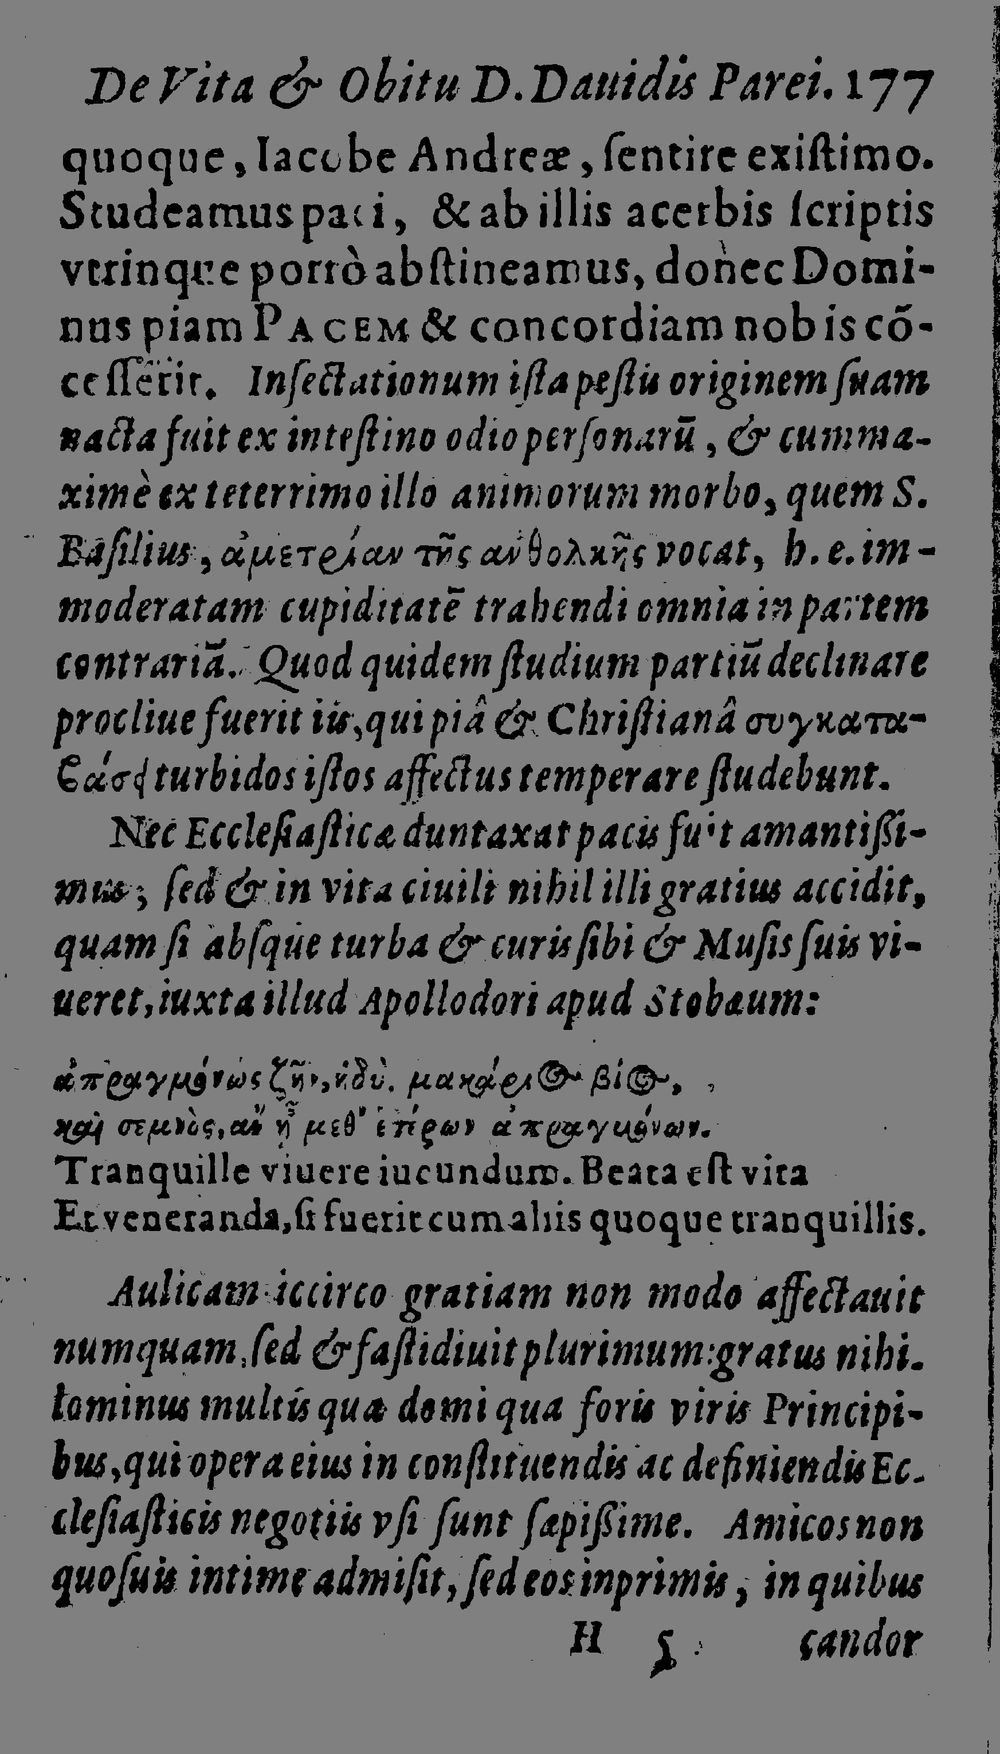 De Vita & Obitu D. Dauidis Parei. 177
quoque, Iacobe Andreæ, ſentire exiſtimo.
Studeamus paci, & ab illis acerbis ſcriptis
vtrinque porrò abſtineamus, donec Domi-
nus piam PACEM & concordiam nobis cõ-
ceſſerit. Inſectationum iſta peſtis originem ſuam
nacta fuit ex inteſtino odio perſonarũ, & cum ma-
ximè ex teterrimo illo animorum morbo, quem S.
Baſilius, ἀμετρίαν τῆς ανθολκῆς vocat, h. e. im-
moderatam cupiditatẽ trahendi omnia in partem
contrariã. Quod quidem ſtudium partiũ declinare
procliue fuerit iis, qui piâ & Chriſtianâ συγκατα-
βάσ turbidos iſtos affectus temperare ſtudebunt.
Nec Eccleſiaſticæ duntaxat pacis fuit amantiſſi-
mus; ſed & in vita ciuili nihil illi gratius accidit,
quam ſi abſque turba & curis ſibi & Muſis ſuis vi-
ueret, iuxta illud Apollodori apud Stobæum:
ἀπραγμόνως ζῆν, ἡδύ. μακάριος βίος,
καὶ σεμνὸς, ἂν ᾖ μεθ' ἑτέρων ἀπραγμόνων.
Tranquille viuere iucundum. Beata eſt vita
Et veneranda, ſi fuerit cum aliis quoque tranquillis.
Aulicam iccirco gratiam non modo affectauit
numquam, ſed & faſtidiuit plurimum: gratus nihi-
lominus multis qua domi qua foris viris Principi-
bus, qui opera eius in conſtituendis ac definiendis Ec-
cleſiaſticis negotiis vſi ſunt ſæpiſſime. Amicos non
quoſuis intime admiſit, ſed eos inprimis, in quibus
H 5 candor